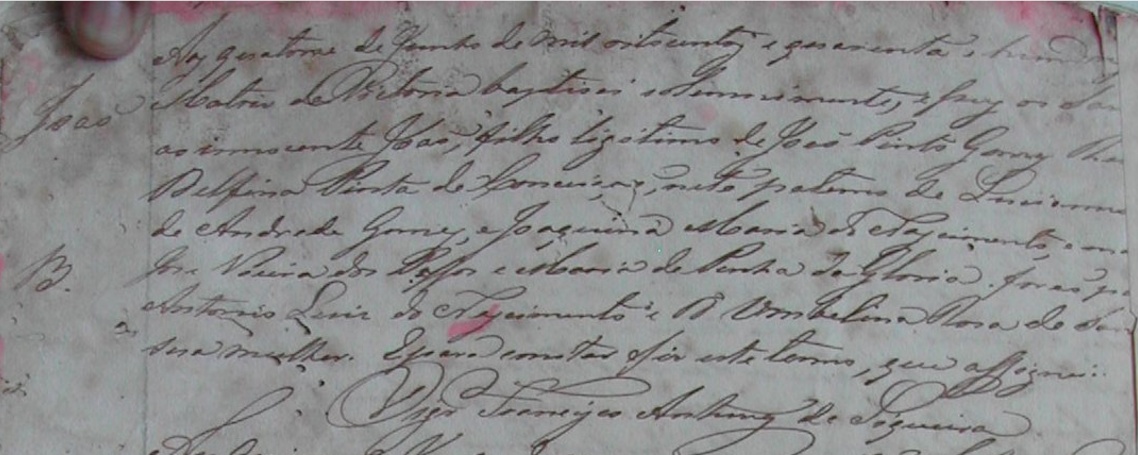 Aos quatorze de Junho de mil oitocentos e quarenta e hum
João
Matriz da Victoria baptisei solemnemente, e puz os San
ao innocente João, filho legitimo de João Pinto Gomes
Delfina Pinta da Conceiçao, neto paterno de Lucianno
de Andrade Gomes, e Joaquina Maria do Nascimento, e ma
B.
José Vieira dos Passos e Maria da Penha da Gloria. Forão p
Antonio Luiz do Nascimento e D. Umbelina Rosa de
sua mulher. E para constar fiz este termo, que assignei.
Vigr.º Francisco Antunes de Siqueira